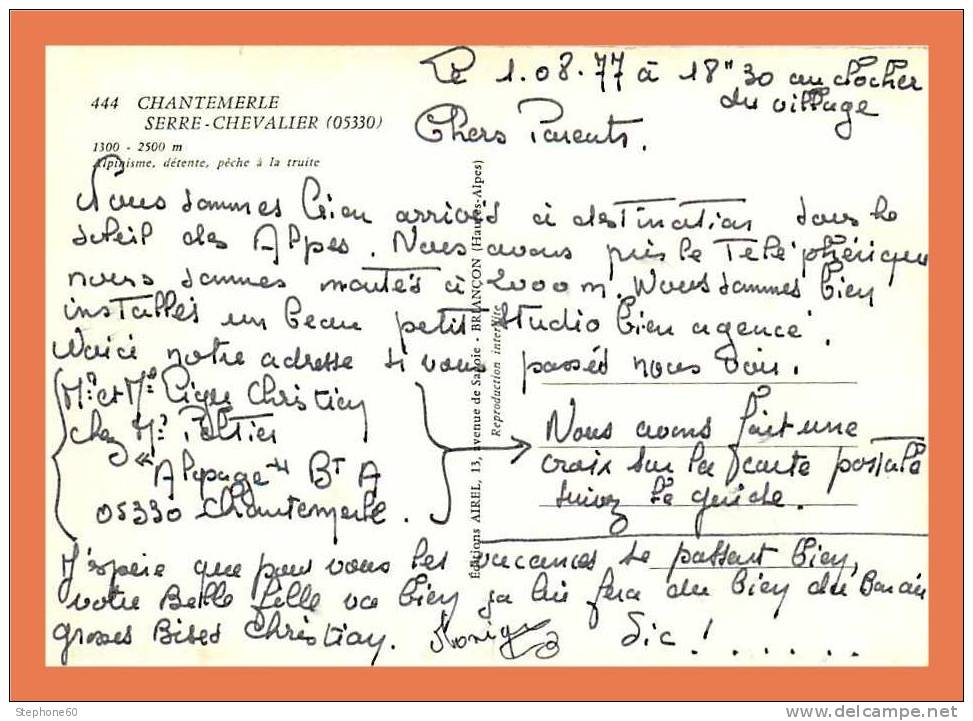 444 CHANTEMERLE
SERRE-CHEVALIER (05330)
1300 - 2500 m
Alpinisme, détente, pêche à la truite
Le 1.08.77 à 18" 30 au clocher
du village
Chers Parents.
Nous sommes bien arrivés à destination sous le
soleil des Alpes. Nous avons pris le Téléphérique
nous sommes montés à 2000 m. Nous sommes bien
installés un beau petit studio bien agencé.
Voici notre adresse si vous passés nous voir.
Mr et Me Christian
chez Mr Peltier
"Alpage" Bt A
05330 Chantemerle.
Nous avons fait une
croix sur la carte postale
suivez le guide.
J'espère que pour vous les vacances se passent bien,
votre Belle fille va bien ça lui fera du bien du
grosses Bises Christian. Monique Sic! . . . . .
Éditions AIREL, 13, avenue de Savoie - BRIANÇON (Hautes-Alpes)
Reproduction interdite
Stephone60
www.delcampe.net